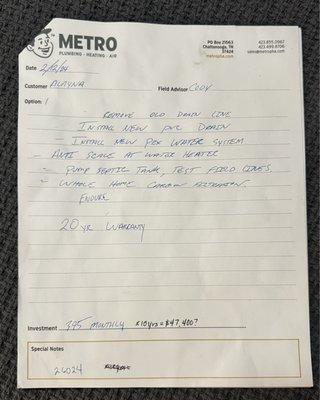 METRO
PLUMBING - HEATING - AIR
PO Box 21563
Chattanooga, TN
37424
metropha.com
423.855.0967
423.499.8706
sales@metropha.com
Date 2/12/24
Customer ALAYNA Field Advisor CODY
Option: 1
REMOVE OLD DRAIN LINE
INSTALL NEW PVC DRAIN
- INSTALL NEW PEX WATER SYSTEM
- ANTI SCALE AT WATER HEATER
- PUMP SEPTIC TANK, TEST FIELD LINES.
- WHOLE HOME CARBON FILTRATION.
ENDURE
20 YR WARRANTY
Investment 395 MONTHLY x10yrs = $47,400?
Special Notes
26024